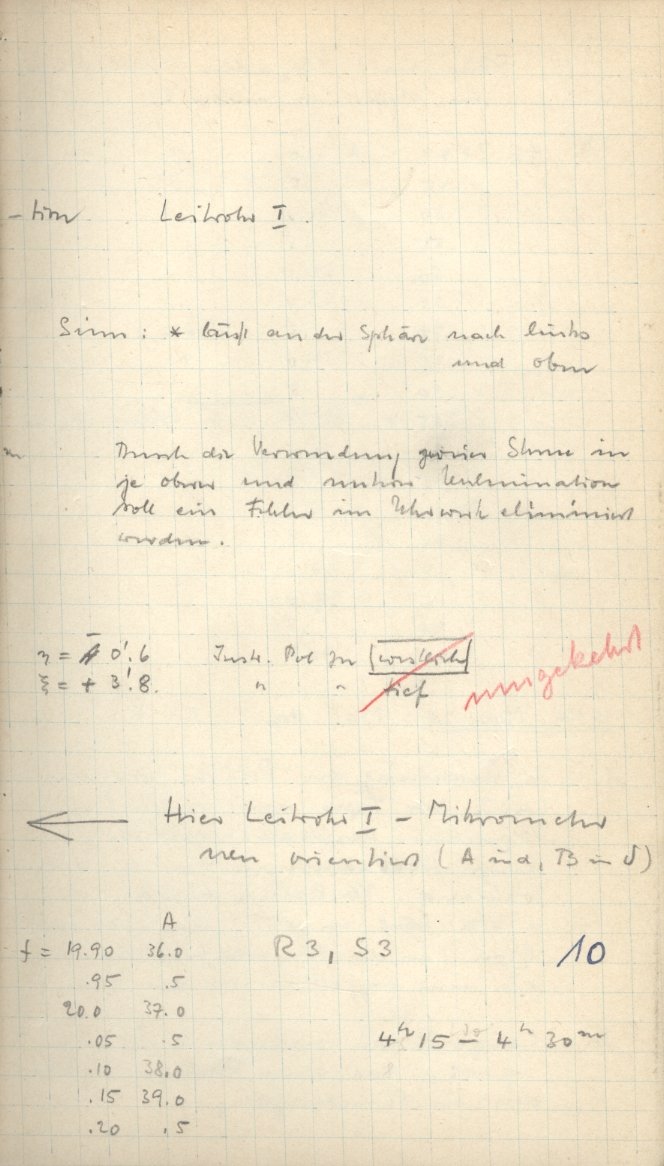 -tion Leitrohr I.
Sinn: * läuft an der Sphäre nach links
und oben
Durch die Verwendung zweier Sterne in
je oberer und unterer Kulmination
soll ein Fehler im Uhrwerk eliminiert
werden.
η = - 0'.6 Instr. Pol zu (westlich)
ξ = + 3'.8. " " tief
umgekehrt
← Hier Leitrohr I - Mikrometer
neu orientiert (A in α, B in δ)
A
f = 19.90 36.0 R3, S3 10
.95 .5
20.0 37.0
.05 .5 4h 15 – 4h 30m
.10 38.0
.15 39.0
.20 .5